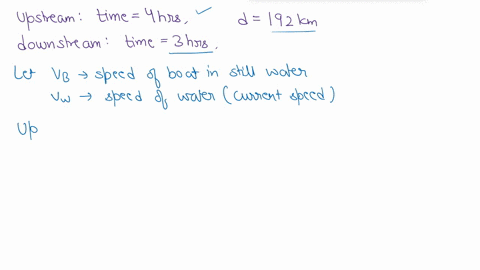 Upstream: time = 4 hrs, ✓ d = 192 km
downstream: time = 3 hrs.
Let V_B → speed of boat in still water
V_W → speed of water (current speed)
Up